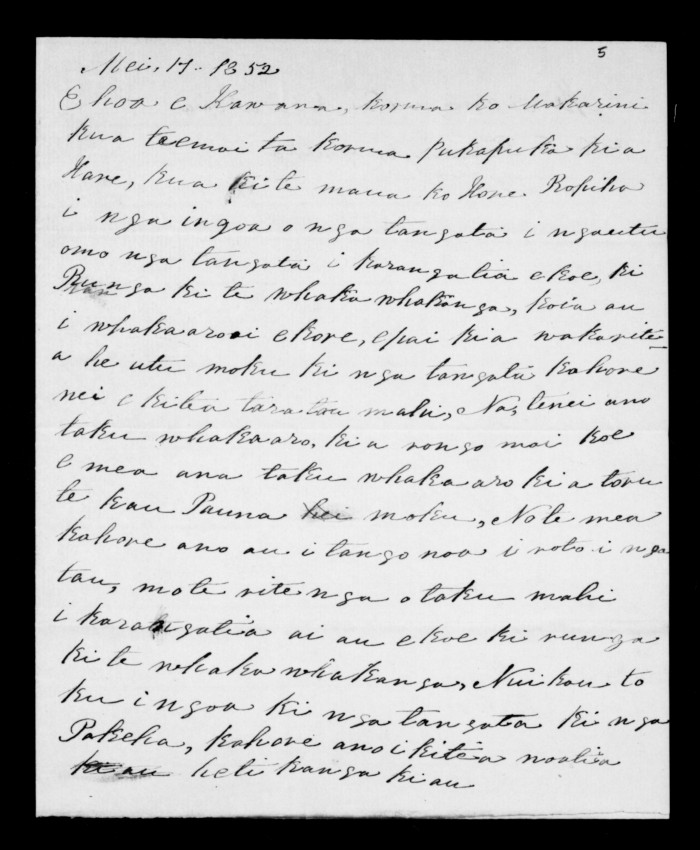 5
Mei, 17 - 1852
E hoa e Kawana, korua ko Makarini
kua tae mai ta korua pukapuka kia
Hare, kua kite maua ko Hone Ropiha
i nga ingoa o nga tangata i nga utu
o mo nga tangata i karangatia e koe, ki
Runga ki te whaka whakanga, koia au
i whakaaro ai e kore, e pai kia wakarite
a he utu moku ki nga tangata kahore
nei e kitea ta ratou mahi, Na, tenei ano
taku whakaaro, kia rongo mai koe
e mea ana taku whakaaro kia toru
te kau Pauna hei moku, No te mea
kahore ano au i tango noa i roto i nga
tau, mo te ritenga o taku mahi
i karangatia ai au e koe ki runga
ki te whaka whakanga, Nui kau to
ku ingoa ki nga tangata ki nga
Pakeha, kahore ano i kitea noatia
ki au hetikanga ki au